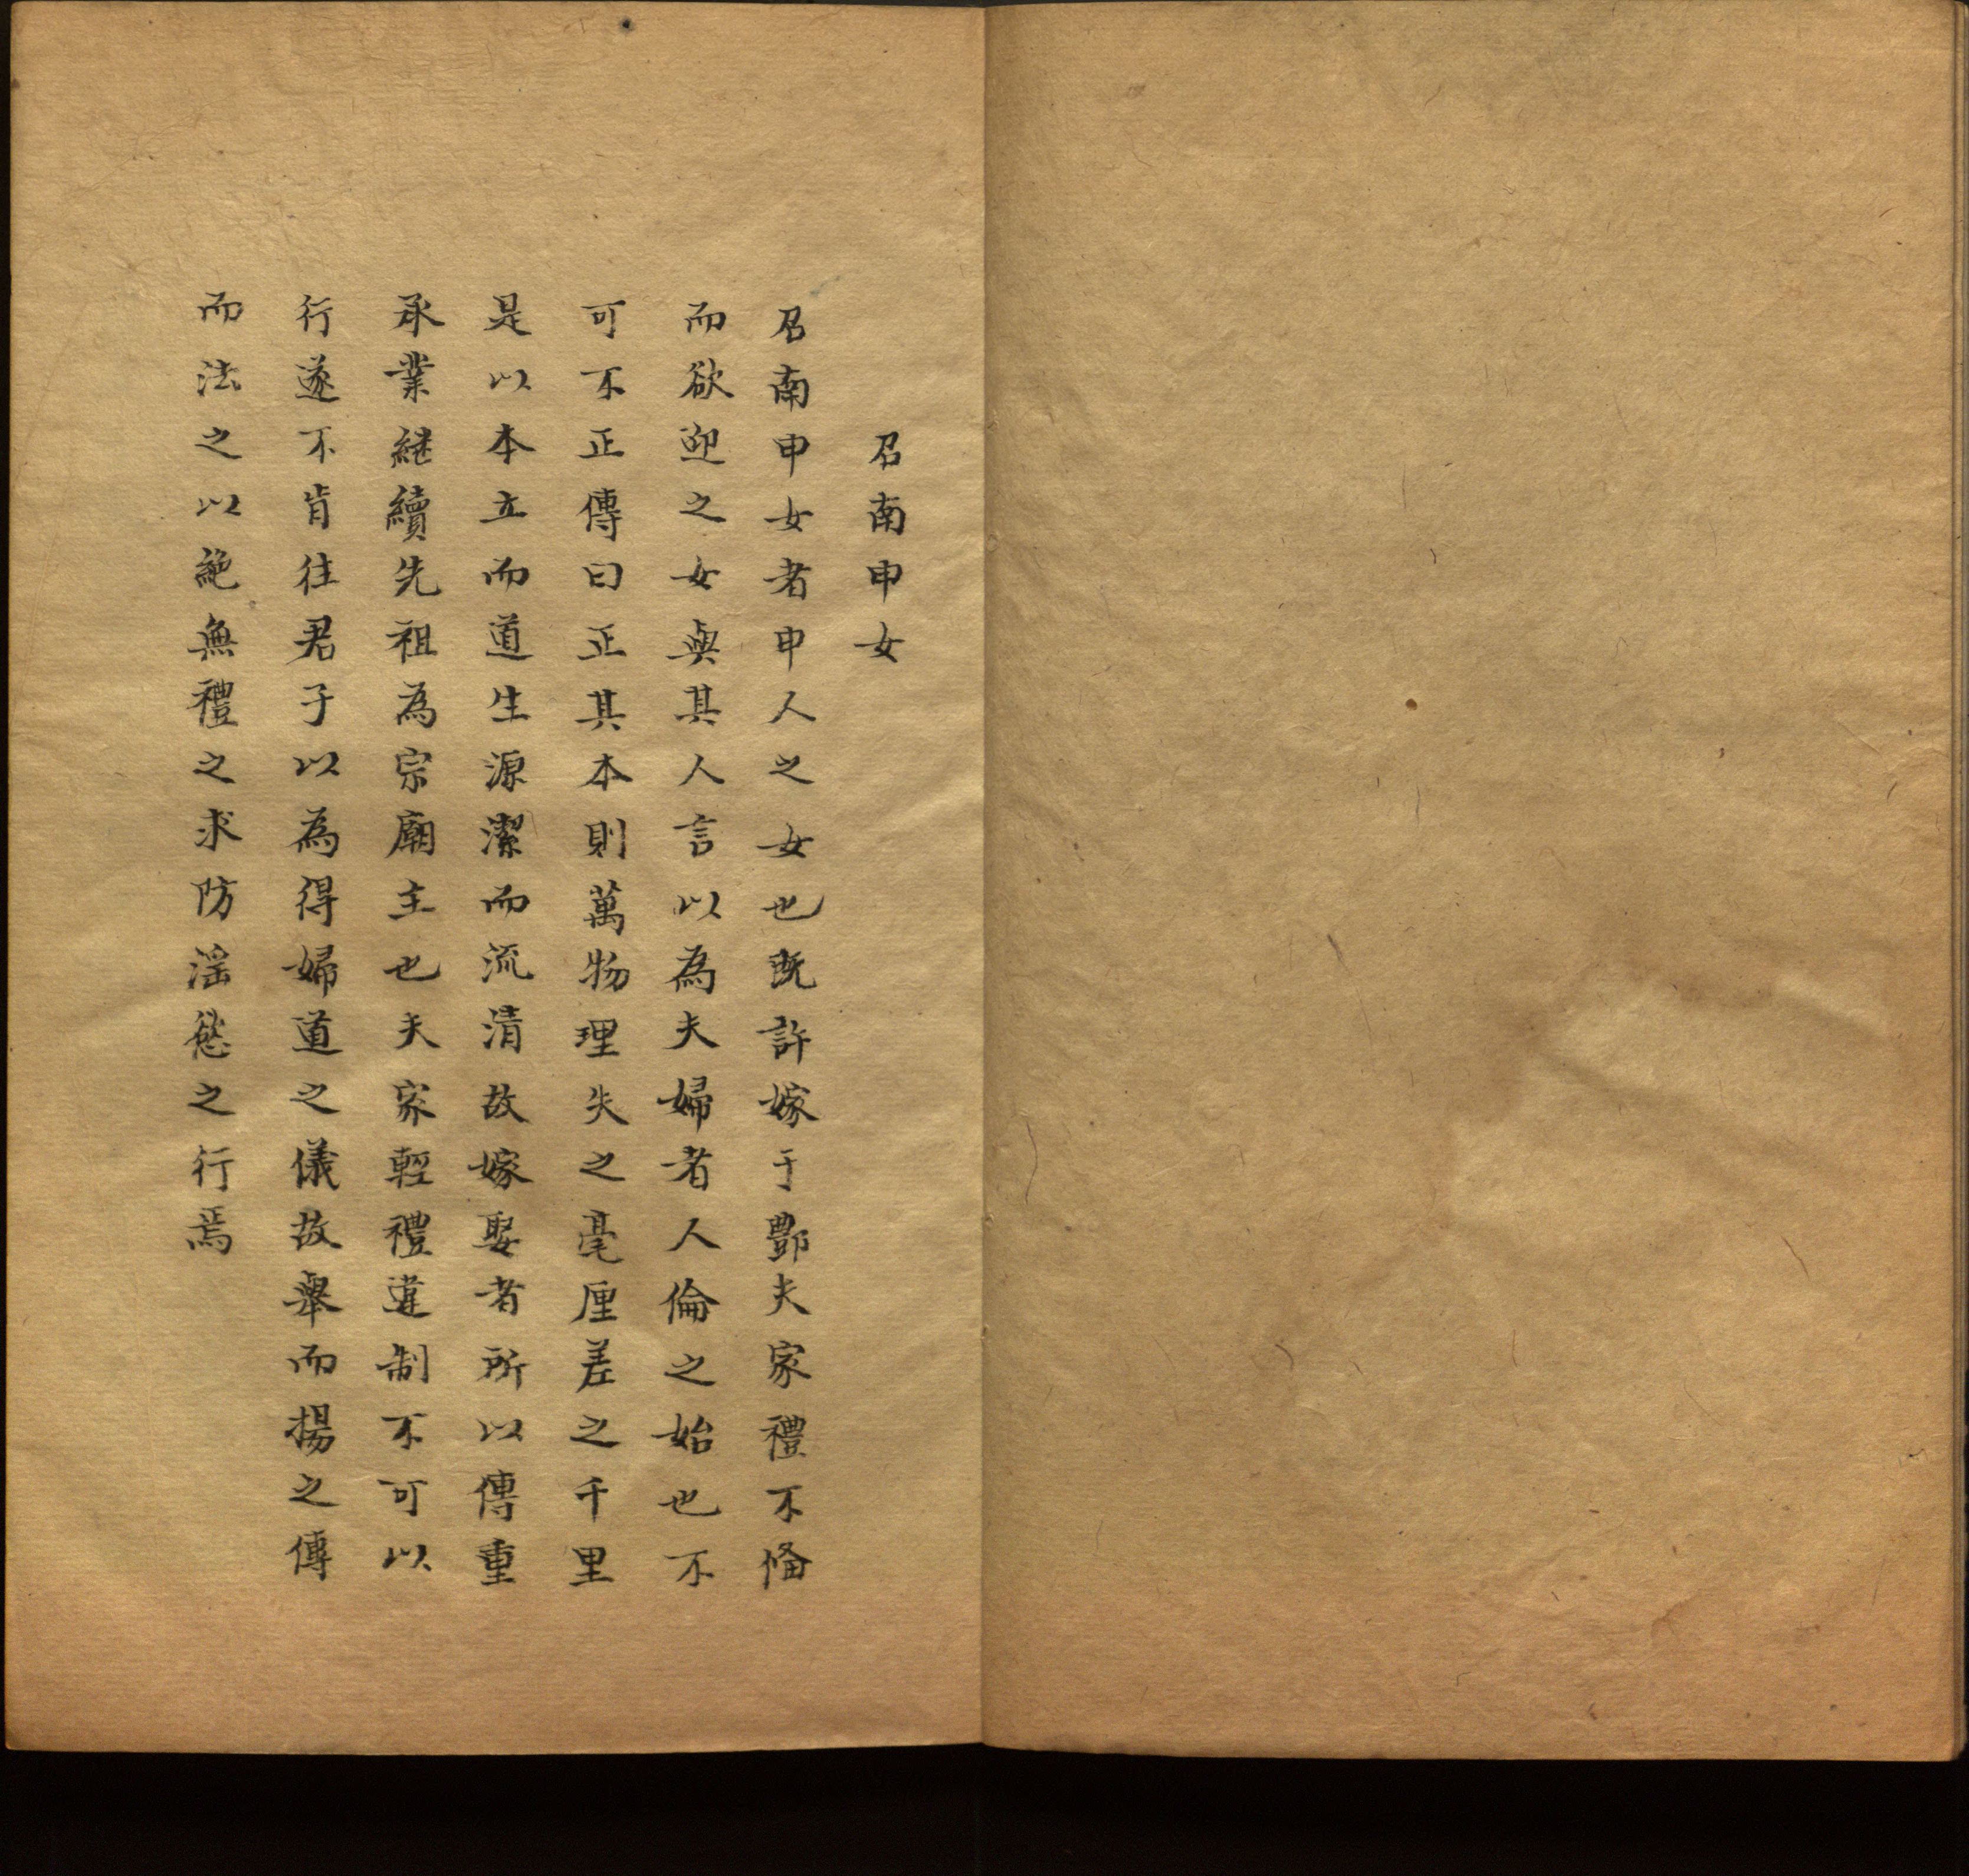 召南申女
召南申女者申人之女也既許嫁于酆夫家禮不俻
而欲迎之女與其人言以為夫婦者人倫之始也不
可不正傳曰正其本則萬物理失之毫厘差之千里
是以本立而道生源潔而流清故嫁娶者所以傳重
承業継續先祖為宗廟主也夫家輕禮違制不可以
行遂不肯往君子以為得婦道之儀故舉而揚之傳
而法之以絶無禮之求防淫慾之行焉